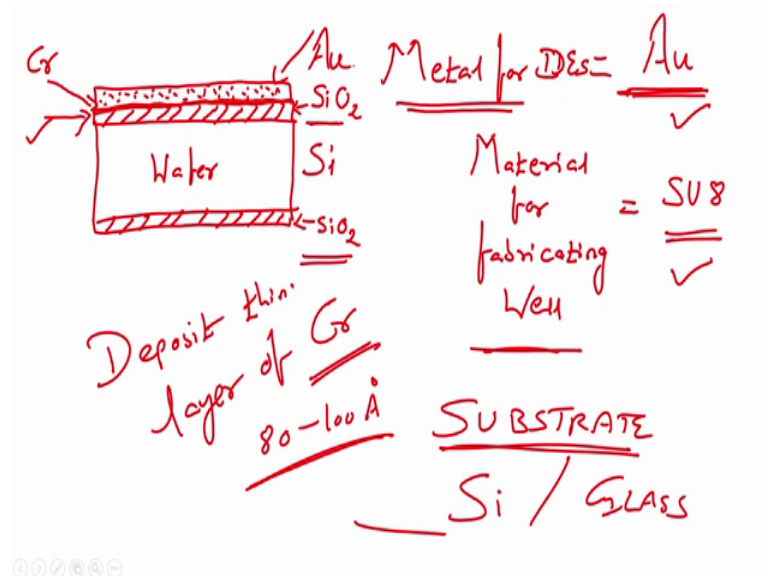 Cr
Au
SiO2
Wafer
Si
SiO2
Metal for IDEs = Au
Material
for
fabricating
Well
= SU8
Deposit thin
layer of Cr
80-100 Å
SUBSTRATE
Si / GLASS